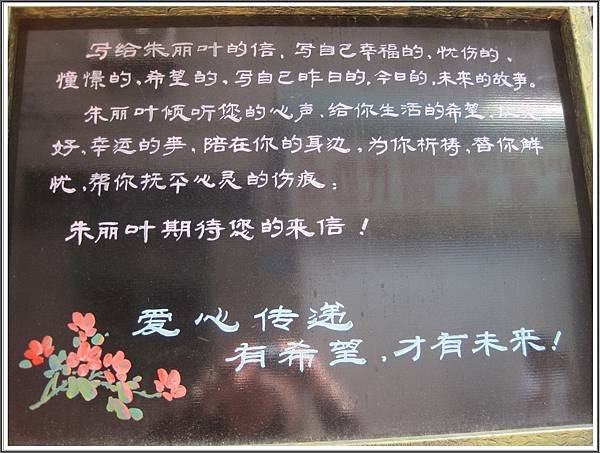 写给朱丽叶的信，写自己幸福的、忧伤的、
憧憬的，希望的，写自己昨日的，今日的，未来的故事。
朱丽叶倾听您的心声，给你生活的希望，
好，幸运的事，陪在你的身边，为你祈祷，替你解
忧，帮你抚平心灵的伤痕；
朱丽叶期待您的来信！
爱心传递
有希望，才有未来！